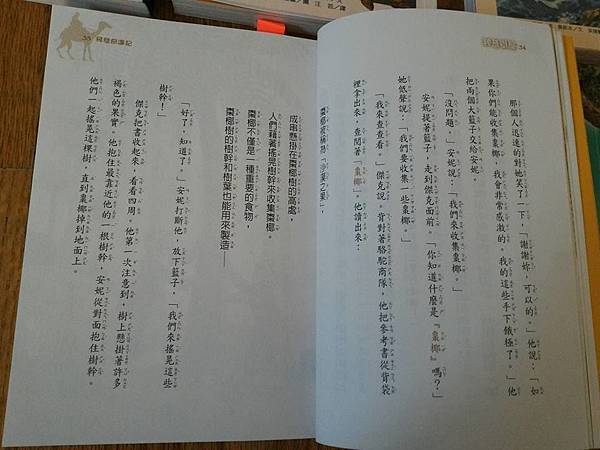 34
那個人迅速的對她笑了一下,「謝謝妳,可以的。」他說:「如
果你們能收集棗椰,我會非常感激的。我的這些手下餓極了。」他
把兩個大籃子交給安妮。
「沒問題。」安妮說:「我們來收集棗椰。」
安妮提著籃子,走到傑克面前。「你知道什麼是『棗椰』嗎?」
她低聲說:「我們要收集一些棗椰。」
「我來查查看。」傑克說。背對著駱駝商隊,他把參考書從背袋
裡拿出來,查閱著「棗椰」。他讀出來:
棗椰被稱為「沙漠之果」,
35
成串懸掛在棗椰樹的高處,
人們藉著搖晃樹幹來收集棗椰。
棗椰不僅是一種重要的食物,
棗椰樹的樹幹和樹葉也能用來製造——
「好了,知道了。」安妮打斷他,放下籃子,「我們來搖晃這些
樹幹!」
傑克把書收起來,看看四周。他第一次注意到,樹上懸掛著許多
褐色的果實。他抱住最靠近他的一根樹幹,安妮從對面抱住樹幹。
他們一起搖晃這棵樹,直到棗椰掉到地面上。